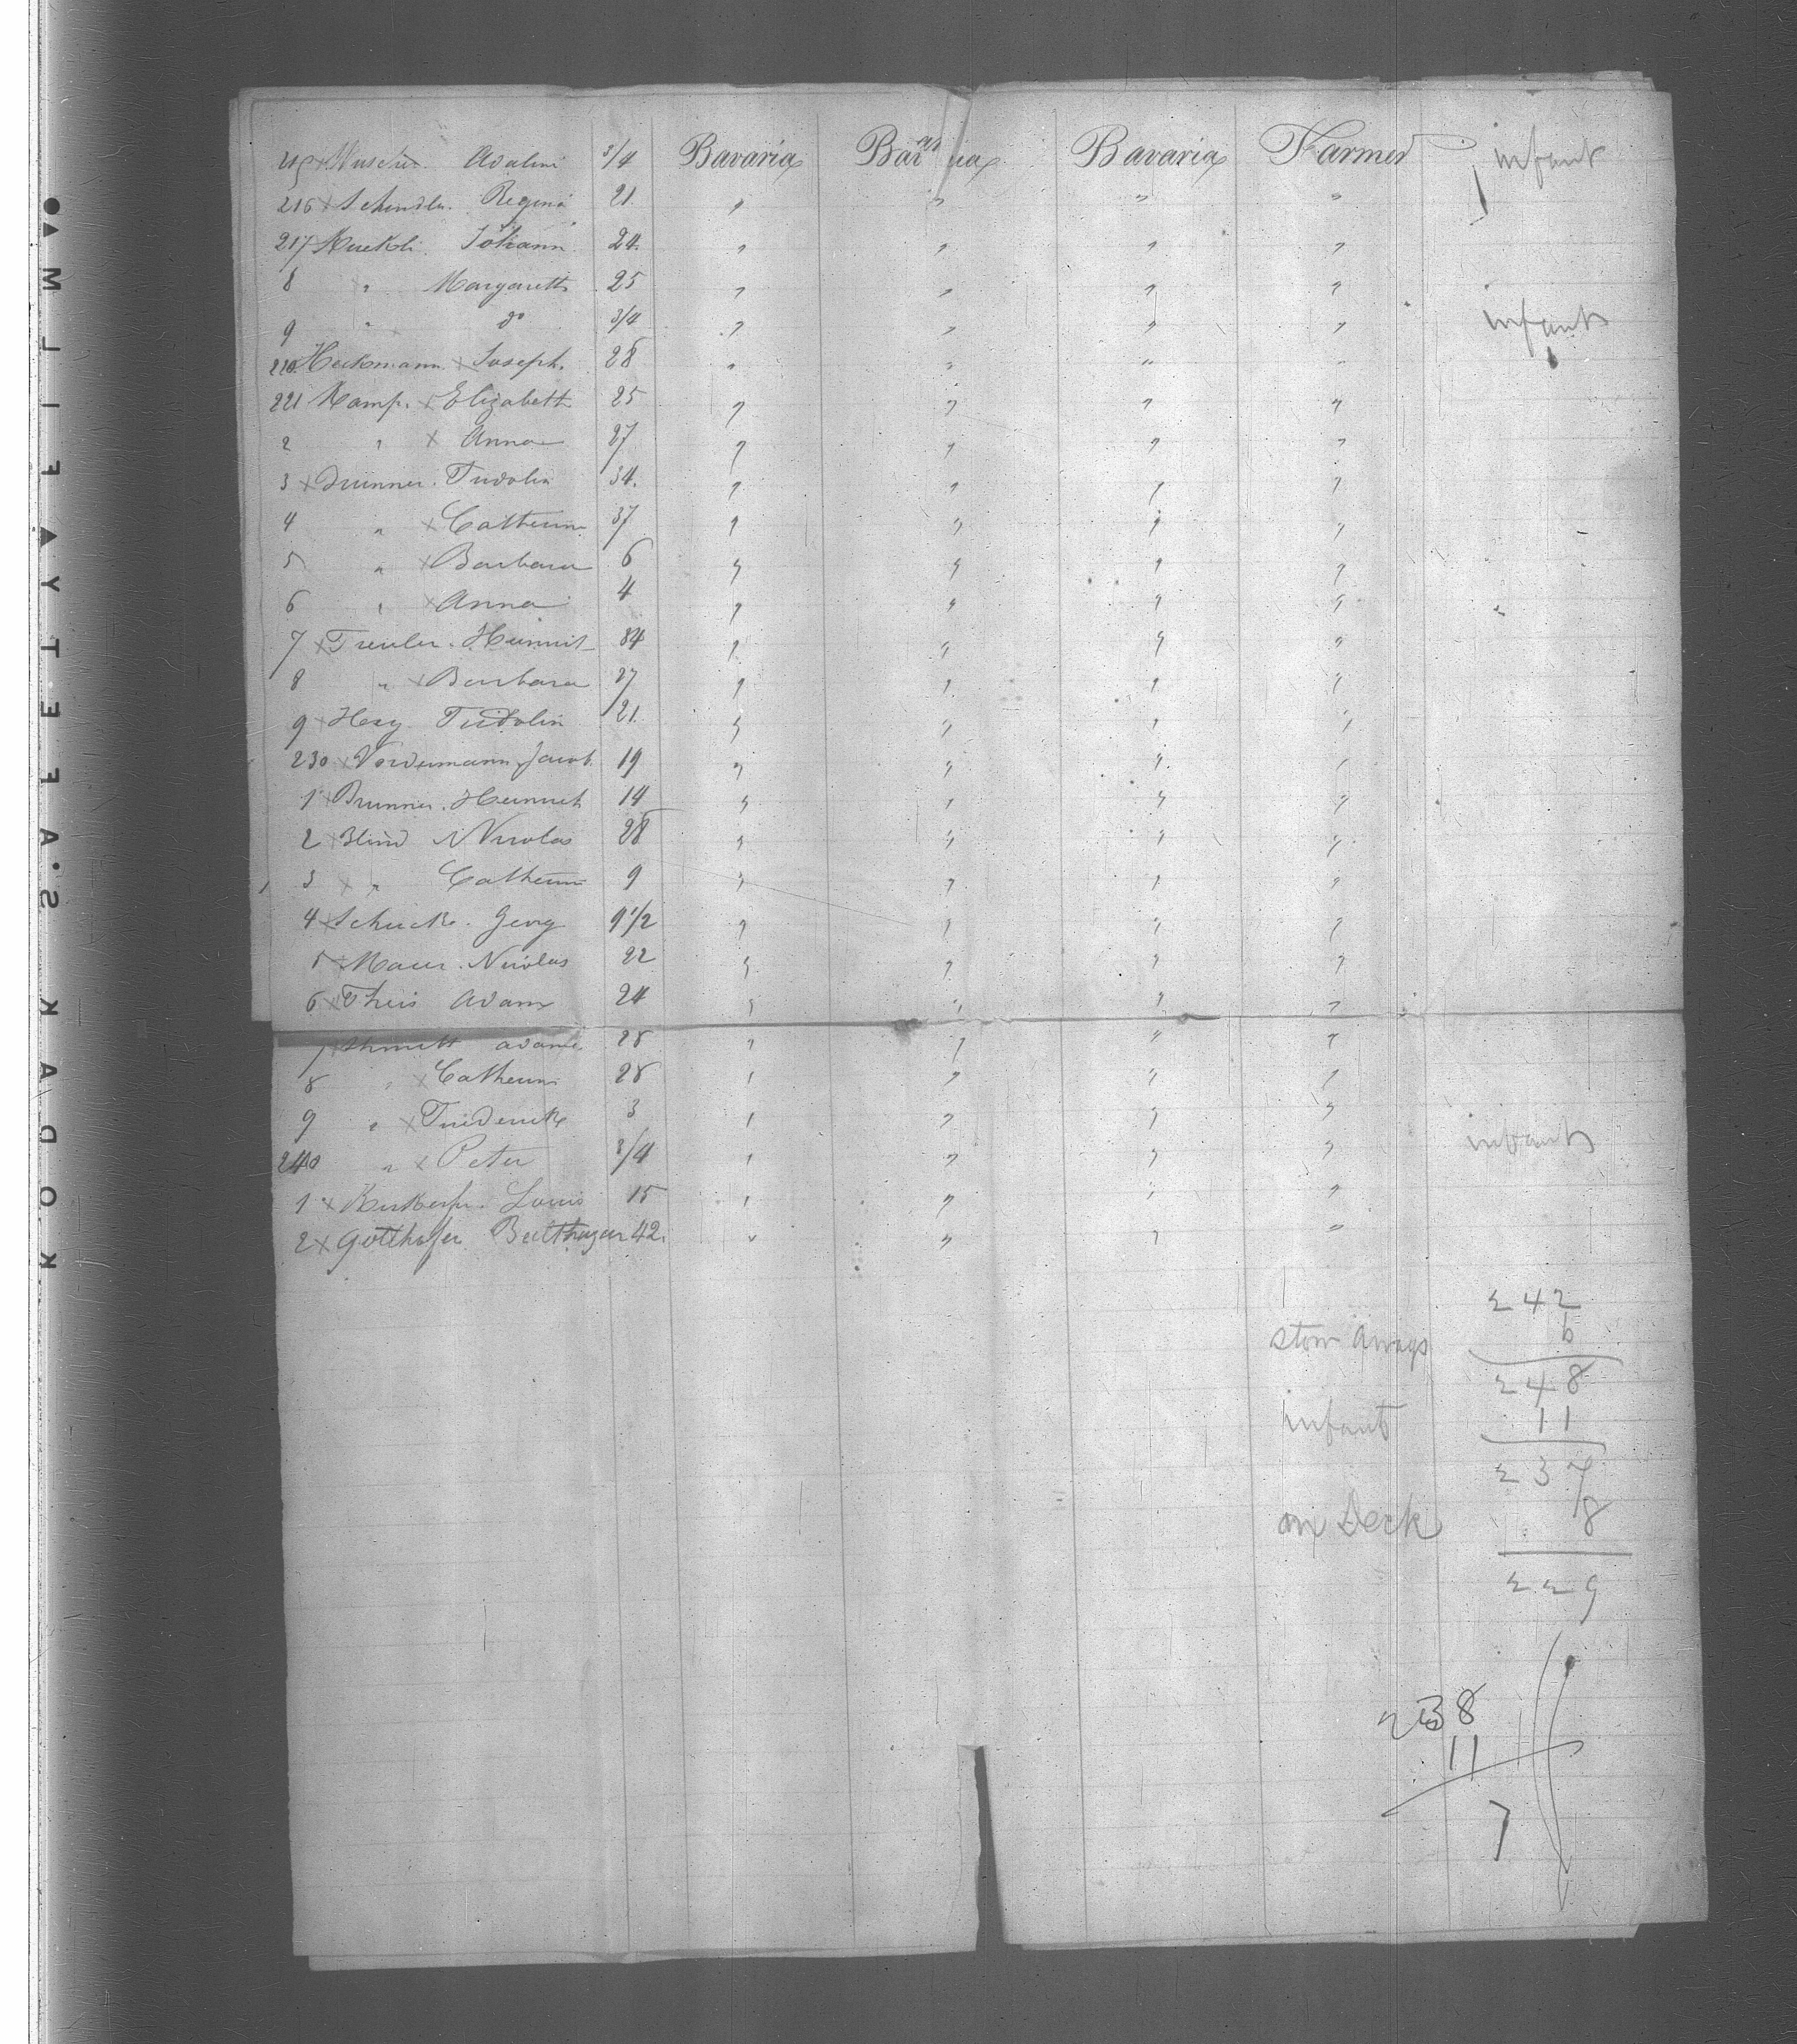 215 Adalini 3/4 Bavaria Bavaria Bavaria Farmer infant
216 x Schindler. Regina 21. " " " "
217 Johann 24. " " " "
8 " Margareth 25 " " " "
9 " do 3/4 " " " " infant
220 Heckmann x Joseph. 28 " " " "
221 Kamp. x Elizabeth 25 " " " "
2 " x Anna 27 " " " "
3 x Fridolin 34. " " " "
4 " x Catherine 37 " " " "
5 " x Barbara 6 " " " "
6 " x Anna 4 " " " "
7 x Treuler. 34 " " " "
8 " x Barbara 27 " " " "
9 x Fridolin 21. " " " "
230 x Vordermann Jacob. 19 " " " "
1 x Brunner. Heinrich 14 " " " "
2 x Blind Nicolas 28 " " " "
3 x " Catherine 9 " " " "
4 x Georg 9 1/2 " " " "
5 x Maur. Nicolas 22 " " " "
6 x Theis Adam 24 " " " "
7 x Schmitt Adam 28 " " " "
8 " x Catherine 28 " " " "
9 " x Friedericke 3 " " " "
240 " x Peter 3/4 " " " " infant
1 x Louis 15 " " " "
2 x Gotthofer 42. " " " "
242
stow aways 6
248
infant 11
237
on Deck 8
229
238
11
7
KODAK S.AFETY FILM